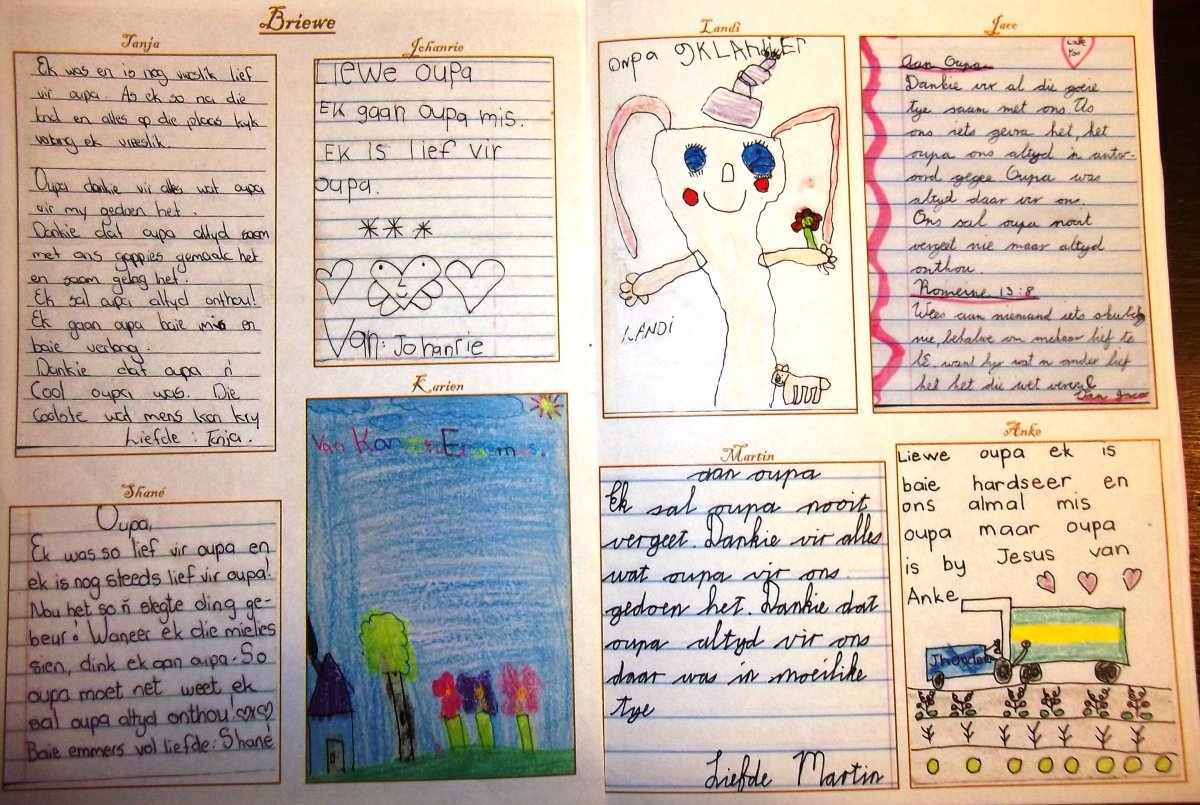 Briewe
Tanja
Ek was en is nog vreeslik lief
vir oupa. As ek so na die
land en alles op die plaas kyk
verlang ek vreeslik.
Oupa dankie vir alles wat oupa
vir my gedoen het.
Dankie dat oupa altyd saam
met ons grappies gemaak het
en saam gelag het.
Ek sal oupa altyd onthou!
Ek gaan oupa baie mis en
baie verlang.
Dankie dat oupa 'n
Cool oupa was. Die
Coolste wat mens kan kry
Liefde: Tanja.
Shané
Oupa,
Ek was so lief vir oupa en
ek is nog steeds lief vir oupa!
Nou het so ñ slegte ding ge-
beur! Waneer ek die mielies
sien, dink ek aan oupa. So
oupa moet net weet ek
sal oupa altyd onthou!
Baie emmers vol liefde: Shané
Johanrie
LIEWE OUPA
EK gaan oupa mis.
EK IS lief vir
oupa.
Van: Johanrie
Karien
Van Karien Erasmus.
Landi
OUPA
LANDI
Jaco
Love
You
Aan Oupa
Dankie vir al die goeie
tye saam met ons. As
ons iets gevra het, het
oupa ons altyd 'n antw-
oord gegee Oupa was
altyd daar vir ons.
Ons sal oupa nooit
vergeet nie maar altyd
onthou.
Romeine 13:8
Wees aan niemand iets skuldig
nie, behalwe om mekaar lief te
hê. want hy wat 'n ander lief
het het die wet vervul
Van Jaco
Martin
aan oupa
Ek sal oupa nooit
vergeet. Dankie vir alles
wat oupa vir ons
gedoen het. Dankie dat
oupa altyd vir ons
daar was in moeilike
tye
Liefde Martin
Anke
Liewe oupa ek is
baie hardseer en
ons almal mis
oupa maar oupa
is by Jesus van
Anke